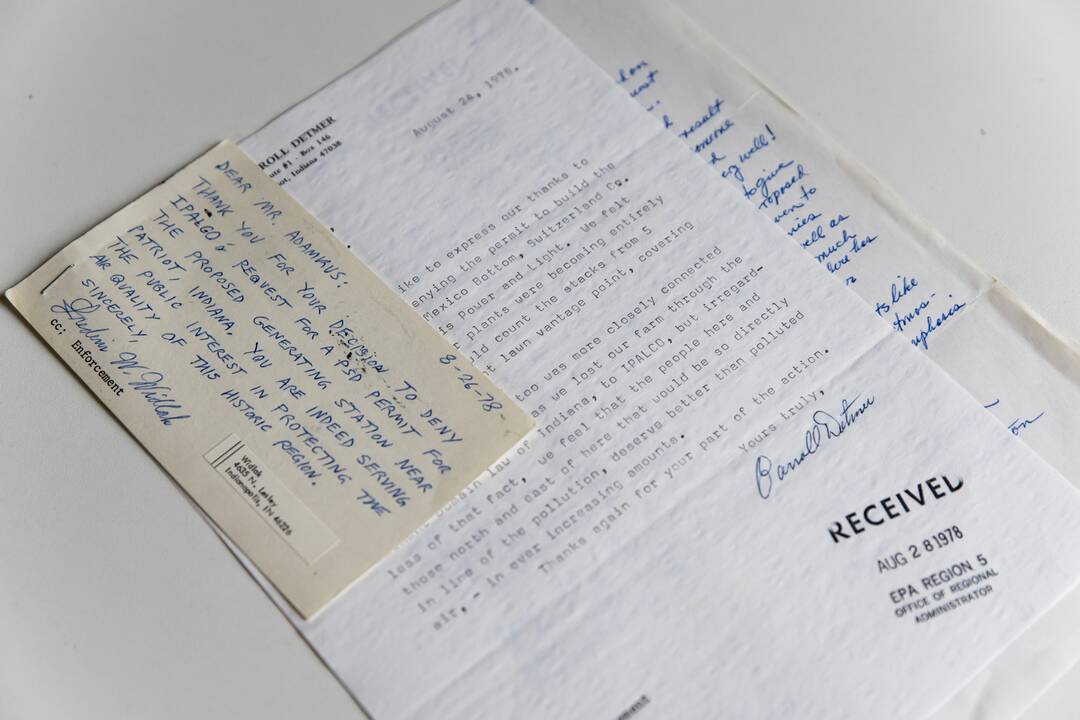 DEAR MR. ADAMKUS: 8-26-78
THANK YOU FOR YOUR DECISION TO DENY
IPALCO'S REQUEST FOR A PSD PERMIT FOR
THE PROPOSED GENERATING STATION NEAR
PATRIOT, INDIANA. YOU ARE INDEED SERVING
THE PUBLIC INTEREST IN PROTECTING THE
AIR QUALITY OF THIS HISTORIC REGION.
SINCERELY,
cc: Enforcement
Widlak
4635 N. Lesley
Indianapolis, IN 46226
ROLL DETMER
ute #1 - Box 146
ot, Indiana 47038
August 24, 1978.
ike to express our thanks to
enying the permit to build the
Mexico Bottom, Switzerland Co.
is Power and Light. We felt
r plants were becoming entirely
ld count the stacks from 5
t lawn vantage point, covering
too was more closely connected
as we lost our farm through the
Law of Indiana, to IPALCO, but irregard-
less of that fact, we feel that the people here and
those north and east of here that would be so directly
in line of the pollution, deserve better than polluted
air, - in ever increasing amounts.
Thanks again for your part of the action.
Yours truly,
Carroll Detmer
RECEIVED
AUG 28 1978
EPA REGION 5
OFFICE OF REGIONAL
ADMINISTRATOR
result
omeone
well!
to give
roposed
ven to
nies
well as
much
ts like